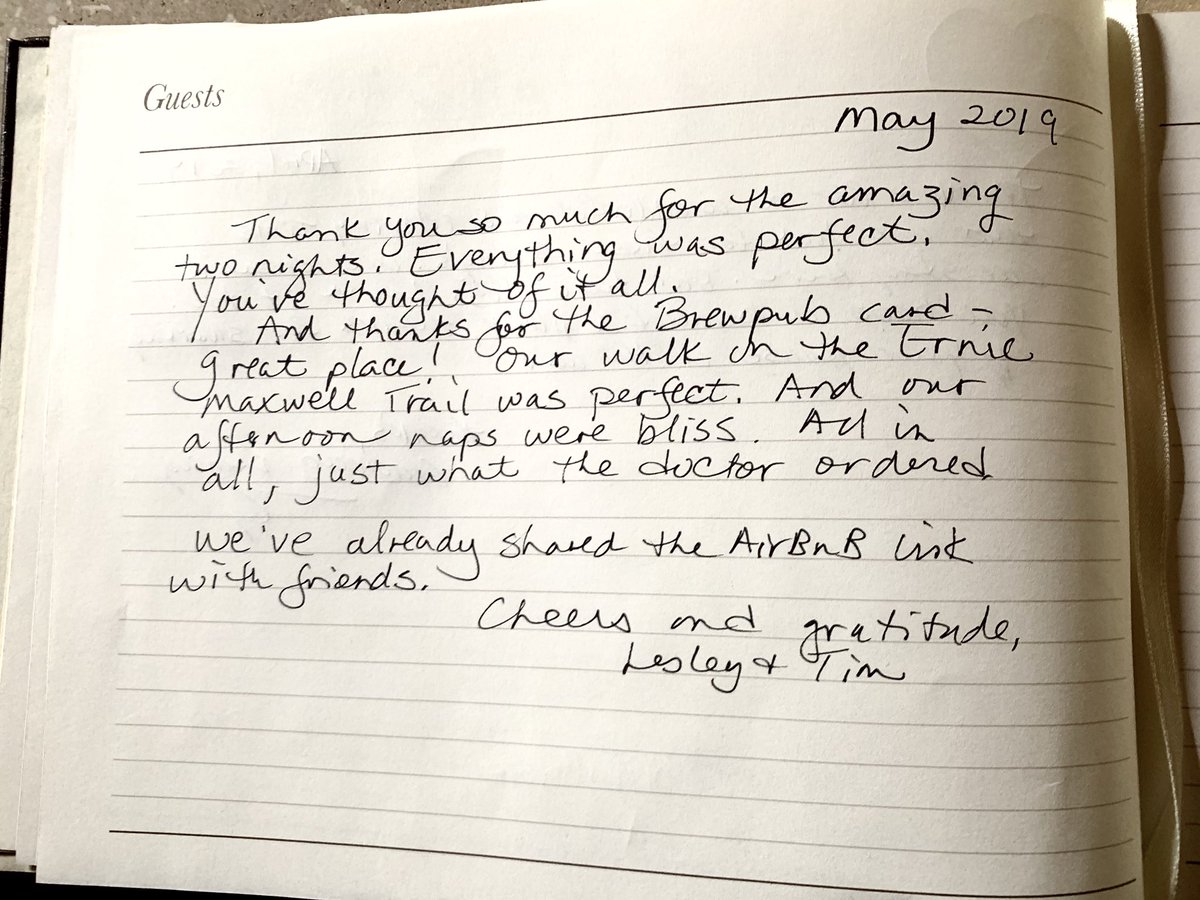 Guests
May 2019
Thank you so much for the amazing
two nights. Everything was perfect.
You've thought of it all.
And thanks for the Brewpub card -
great place! Our walk on the Ernie
Maxwell Trail was perfect. And our
afternoon naps were bliss. All in
all, just what the doctor ordered.
We've already shared the AirBnB link
with friends.
Cheers and gratitude,
Lesley + Tim